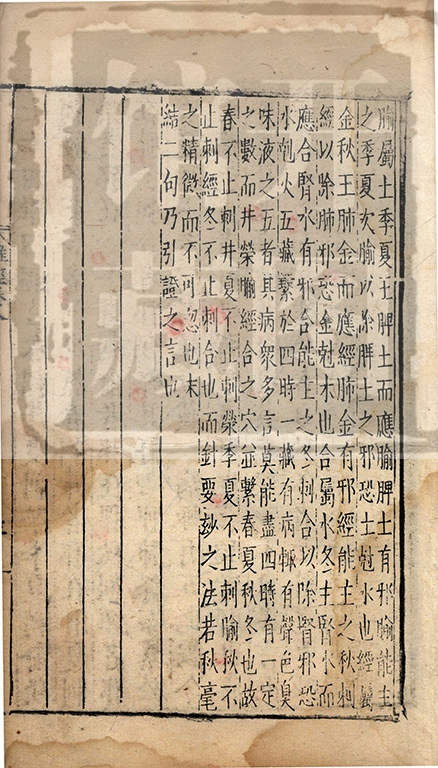 腧屬土季夏王脾土而應腧脾土有邪腧能主
之季夏次腧以除脾土之邪恐土尅水也經屬
金秋王肺金而應經肺金有邪經能主之秋刺
經以除肺邪恐金尅木也合屬水冬主腎水而
應合腎水有邪合能主之冬刺合以除腎邪恐
水尅火五藏繫於四時一藏有病輒有聲色臭
味液之五者其病衆多言莫能盡四時有一定
之數而井榮腧經合之穴並繫春夏秋冬也故
春不止刺井夏不止刺榮季夏不止刺腧秋不
止刺經冬不止刺合也而針要玅之法若秋毫
之精微而不可忽也末
結二句乃引證之言也